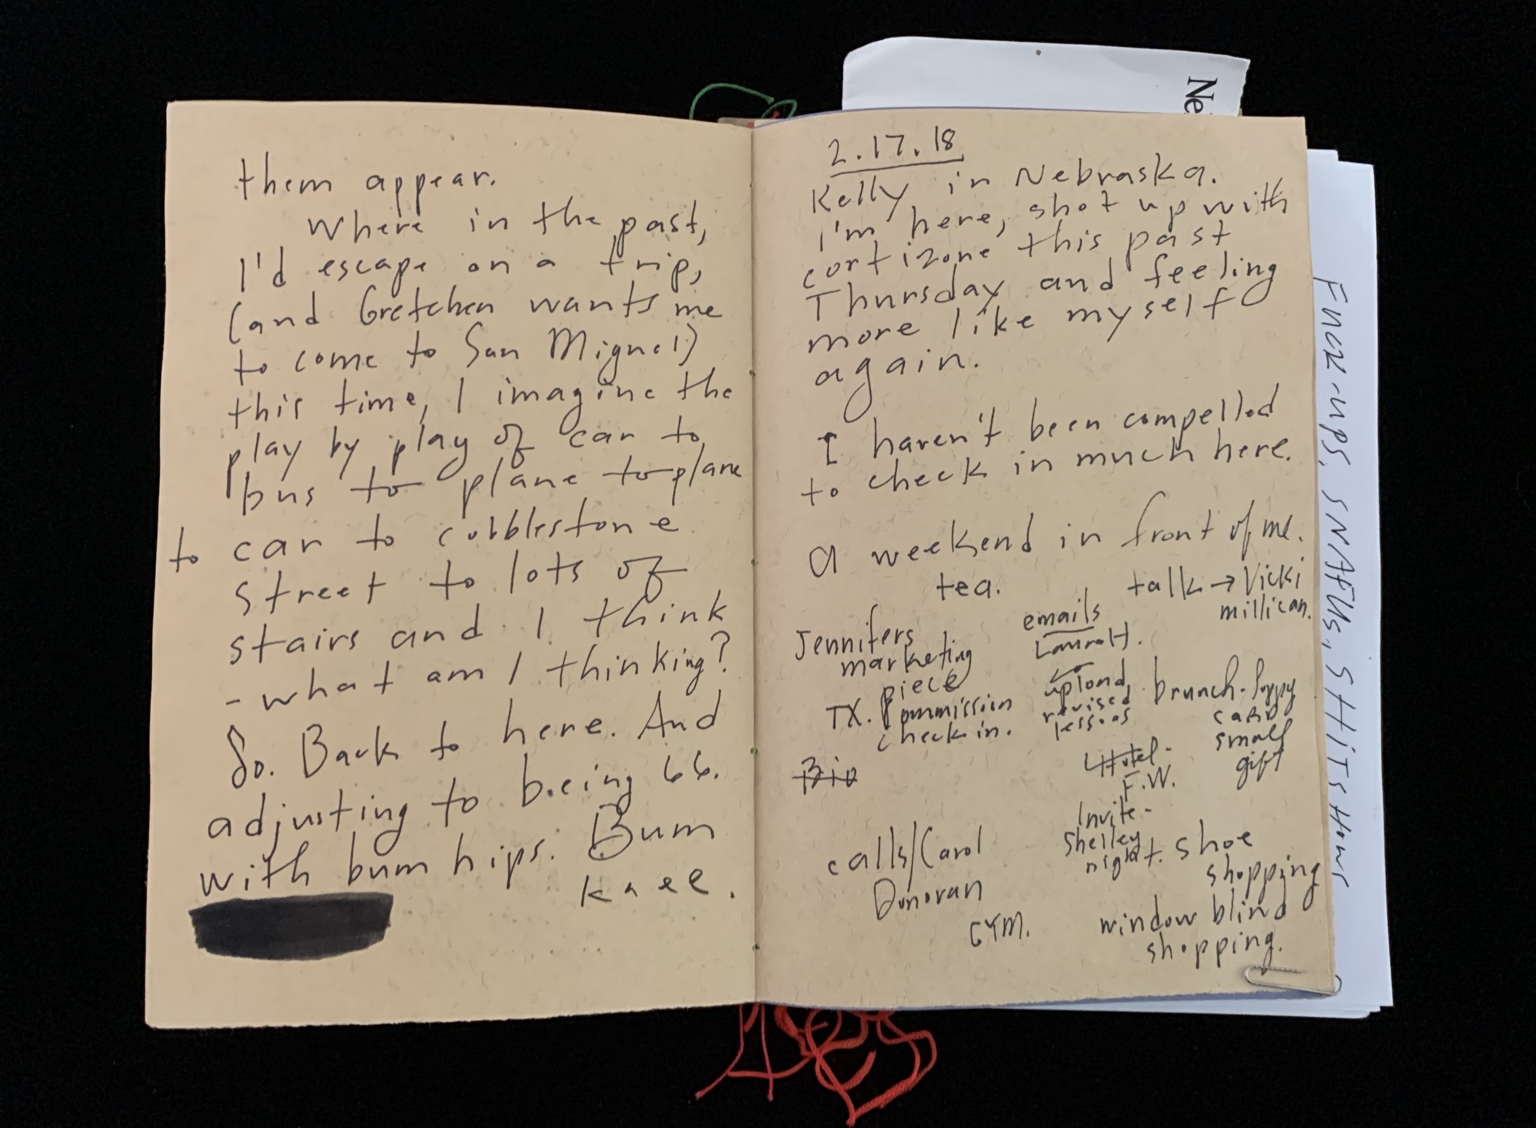 them appear.
Where in the past,
I'd escape on a trip,
(and Gretchen wants me
to come to San Miguel)
this time, I imagine the
play by play of car to
bus to plane to plane
to car to cobblestone
street to lots of
stairs and I think
- what am I thinking?
So. Back to here. And
adjusting to being 66.
with bum hips. Bum
knee.
Ne
2.17.18
Kelly in Nebraska.
I'm here, shot up with
cortizone this past
Thursday and feeling
more like myself
again.
I haven't been compelled
to check in much here.
A weekend in front of me.
tea.
talk → Vicki
millican.
Jennifers
marketing
piece
TX. Commission
check in.
Bio
emails
Laura H.
upload
revised
lessons
Hotel-
F.W.
Invite-
Shelley
night.
brunch-Poppy
card
small
gift
calls/Carol
Donovan
GYM.
shoe
shopping
window blind
shopping.
Fuck-ups, SNAFUs, SHITSHOWS